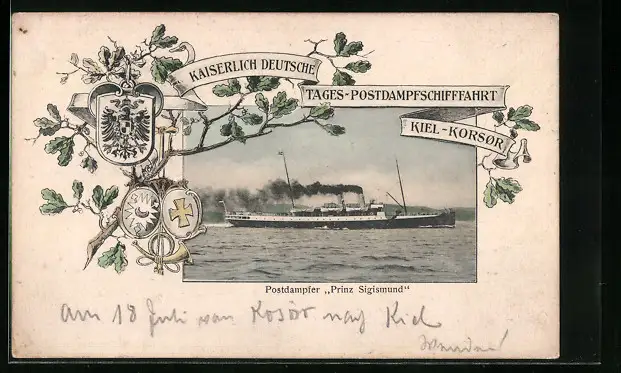 KAISERLICH DEUTSCHE
TAGES-POSTDAMPFSCHIFFFAHRT
KIEL-KORSØR
Postdampfer „Prinz Sigismund"
Am 18 Juli von Kosör nach Kiel